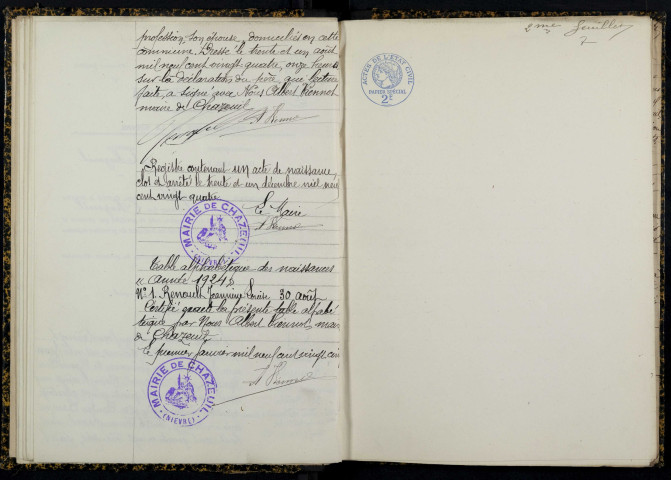 profession, son épouse, domiciliés en cette
commune. Dressé le trente et un août
mil neuf cent vingt quatre, onze heures
sur la déclaration du père, qui, lecture
faite, a signé avec Nous Albert Vionnot
maire de Chazeuil
Registre contenant un acte de naissance,
clos et arrêté le trente et un décembre mil neuf
cent vingt quatre
Le Maire
MAIRIE DE CHAZEUIL
(NIÈVRE)
Table alphabétique des naissances
année 1924
N° 1. Renault Jeannine Louise 30 août
Certifié exacte la présente table alphabé
tique par Nous Albert Vionnot, maire
de Chazeuil,
Le premier janvier mil neuf cent vingt cinq
MAIRIE DE CHAZEUIL
(NIÈVRE)
2me feuillet
ACTES DE L'ÉTAT CIVIL
PAPIER SPÉCIAL
2F